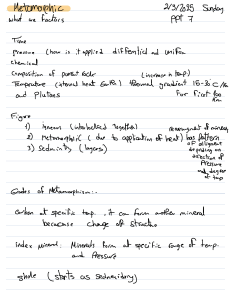 Metamorphic 2/3/2025 Sunday
what are factors PPT 7
Time
Pressure (how is it applied differential and uniform
chemical
Composition of parent Rock (increase in temp)
Temperature (internal heat Earth) thermal gradient 15-30 C/km
and plutons for first
Figure
1) igneous (interlocked together) rearrangment of minerals
2) Metamorphic (due to application of heat) has pattern
3) Sedmintry (layers) of alligment
depending on
direction of
Pressure
and degree
of temp
Grades of Metamorphism:-
Carbon at specific temp. it can form another mineral
because change of structure
Index mineral: Minerals form at specific range of temp.
and Pressure
shale (starts as sedimentary)